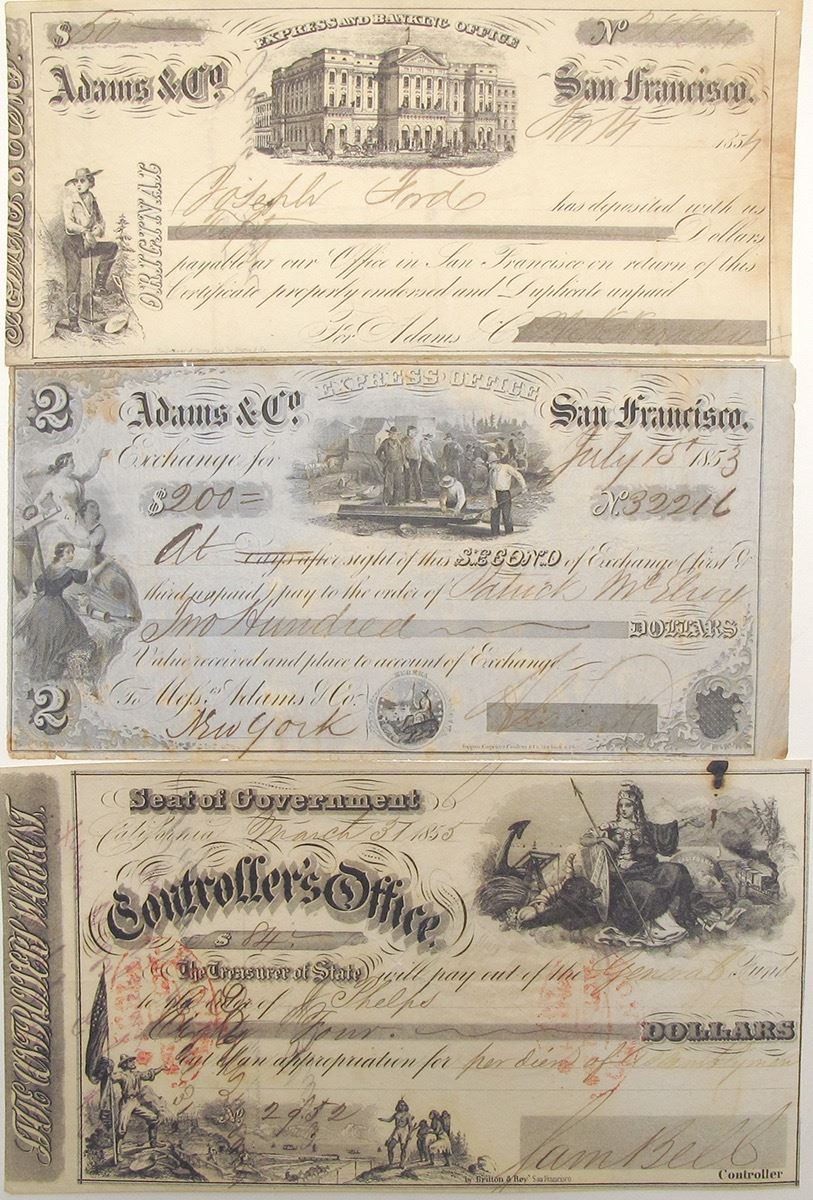 EXPRESS AND BANKING OFFICE
$ 50 No
Adams & Co. San Francisco.
1854
ORIGINAL
Joseph Ford has deposited with us
Fifty Dollars
payable at our Office in San Francisco on return of this
Certificate properly endorsed and Duplicate unpaid
For Adams & Co
2
EXPRESS OFFICE
Adams & Co. San Francisco.
Exchange for July 15th 1853
$ 200= No. 32216
At Days after sight of this SECOND of Exchange (first &
third unpaid) pay to the order of Patrick McElroy
Two Hundred DOLLARS
Value received and place to account of Exchange
To Mess.rs Adams & Co.
New York
EUREKA
2
STATE CONTROLLER'S WARRANT.
Seat of Government
California March 31 1855
Controller's Office.
$ 84.
The Treasurer of State will pay out of the General Fund
to the order of J Phelps
Eighty Four. DOLLARS
out of an appropriation for per diem of
No 2952
Sam Bell
Controller
by Britton & Rey San Francisco